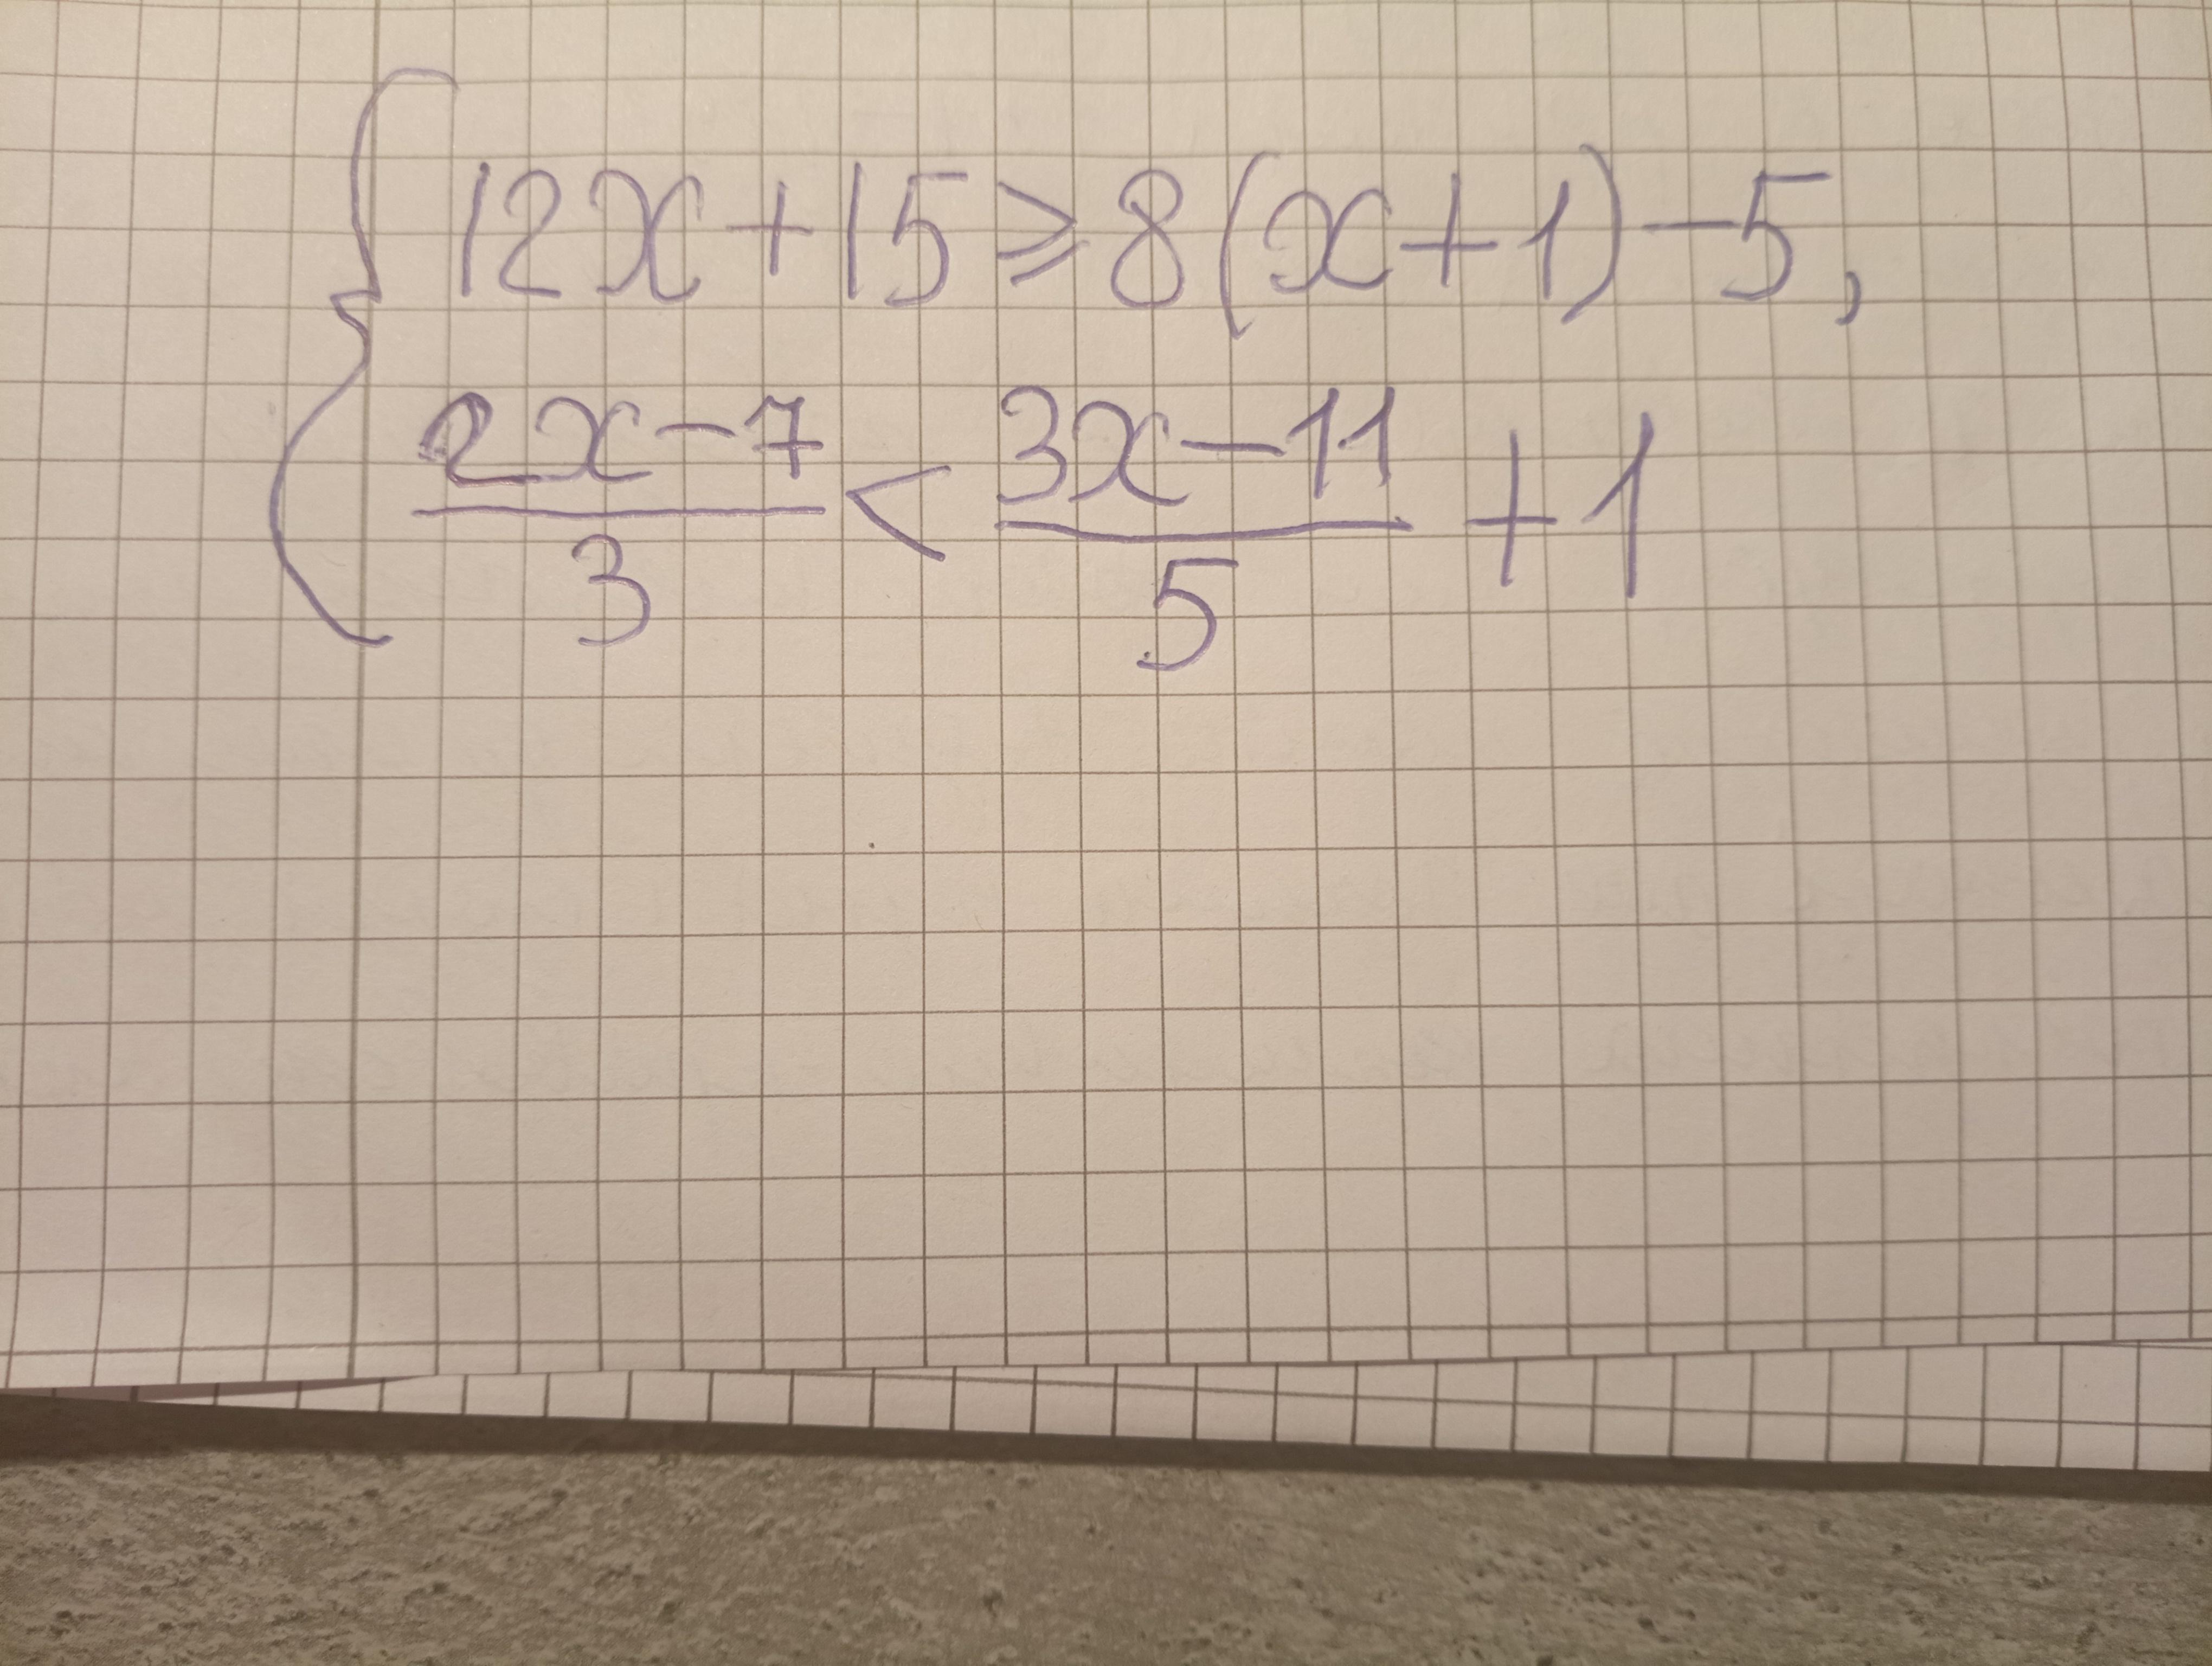 12x+15≥8(x+1)-5,
(2x-7)/3 < (3x-11)/5 +1